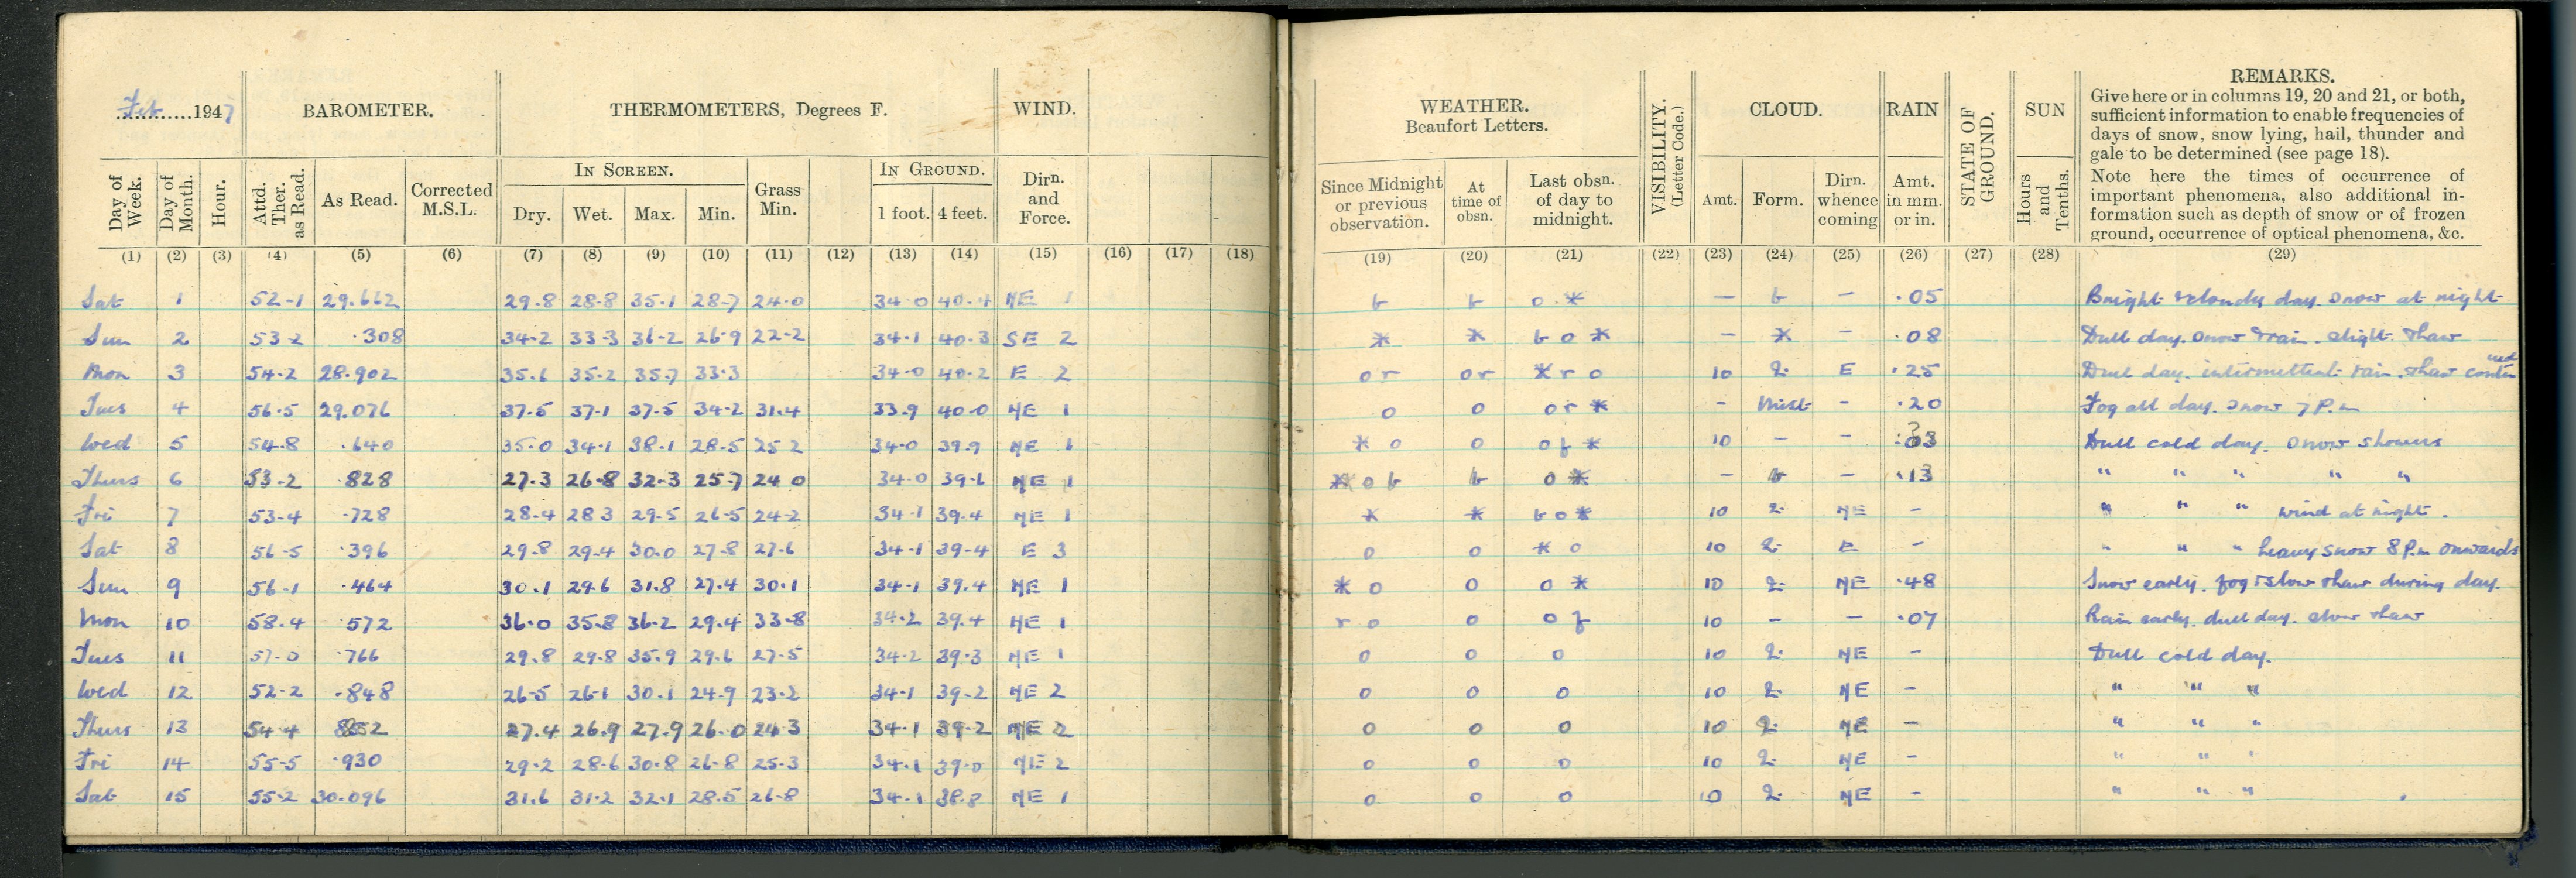 Feb 1947 BAROMETER. THERMOMETERS, Degrees F. WIND.
Day of Week. Day of Month. Hour. Attd. Ther. as Read. As Read. Corrected M.S.L. IN SCREEN. Dry. Wet. Max. Min. Grass Min. IN GROUND. 1 foot. 4 feet. Dirn. and Force.
(1) (2) (3) (4) (5) (6) (7) (8) (9) (10) (11) (12) (13) (14) (15) (16) (17) (18)
Sat 1 52.1 29.662 29.8 28.8 35.1 28.7 24.0 34.0 40.4 NE 1
Sun 2 53.2 .308 34.2 33.3 36.2 26.9 22.2 34.1 40.3 SE 2
Mon 3 54.2 28.902 35.6 35.2 35.7 33.3 34.0 40.2 E 2
Tues 4 56.5 29.076 37.5 37.1 37.5 34.2 31.4 33.9 40.0 NE 1
Wed 5 54.8 .640 35.0 34.1 38.1 28.5 25.2 34.0 39.9 NE 1
Thurs 6 53.2 .828 27.3 26.8 32.3 25.7 24.0 34.0 39.6 NE 1
Fri 7 53.4 .728 28.4 28.3 29.5 26.5 24.2 34.1 39.4 NE 1
Sat 8 56.5 .396 29.8 29.4 30.0 27.8 27.6 34.1 39.4 E 3
Sun 9 56.1 .464 30.1 29.6 31.8 27.4 30.1 34.1 39.4 NE 1
Mon 10 58.4 .572 36.0 35.8 36.2 29.4 33.8 34.2 39.4 NE 1
Tues 11 57.0 .766 29.8 29.8 35.9 29.6 27.5 34.2 39.3 NE 1
Wed 12 52.2 .848 26.5 26.1 30.1 24.9 23.2 34.1 39.2 NE 2
Thurs 13 54.4 27.4 26.9 27.9 26.0 24.3 34.1 39.2 NE 2
Fri 14 55.5 .930 29.2 28.6 30.8 26.8 25.3 34.1 39.0 NE 2
Sat 15 55.2 30.096 31.6 31.2 32.1 28.5 26.8 34.1 38.8 NE 1
WEATHER. Beaufort Letters. VISIBILITY. (Letter Code.) CLOUD. RAIN STATE OF GROUND. SUN REMARKS.
Give here or in columns 19, 20 and 21, or both,
sufficient information to enable frequencies of
days of snow, snow lying, hail, thunder and
gale to be determined (see page 18).
Note here the times of occurrence of
important phenomena, also additional in-
formation such as depth of snow or of frozen
ground, occurrence of optical phenomena, &c.
Since Midnight or previous observation. At time of obsn. Last obsn. of day to midnight. Amt. Form. Dirn. whence coming Amt. in mm. or in. Hours and Tenths.
(19) (20) (21) (22) (23) (24) (25) (26) (27) (28) (29)
b b o * – b – .05 Bright & cloudy day. Snow at night
* * b o * – * – .08 Dull day. Snow & rain. slight thaw
o r o r * r o 10 2. E .25 Dull day. intermittent rain. thaw continued
o o o r * – Mist – .20 Fog all day. Snow 7 P.m
* o o o f * 10 – – Dull cold day. Snow showers
* o b b o * – b – .13 " " " " "
* * b o * 10 2. NE – " " " wind at night.
o o * o 10 2. E – " " " heavy snow 8 P.m onwards
* o o o * 10 2. NE .48 Snow early. fog & slow thaw during day.
r o o o f 10 – – .07 Rain early. dull day. slow thaw
o o o 10 2. NE – Dull cold day.
o o o 10 2. NE – " " "
o o o 10 2. NE – " " "
o o o 10 2. NE – " " "
o o o 10 2. NE – " " "